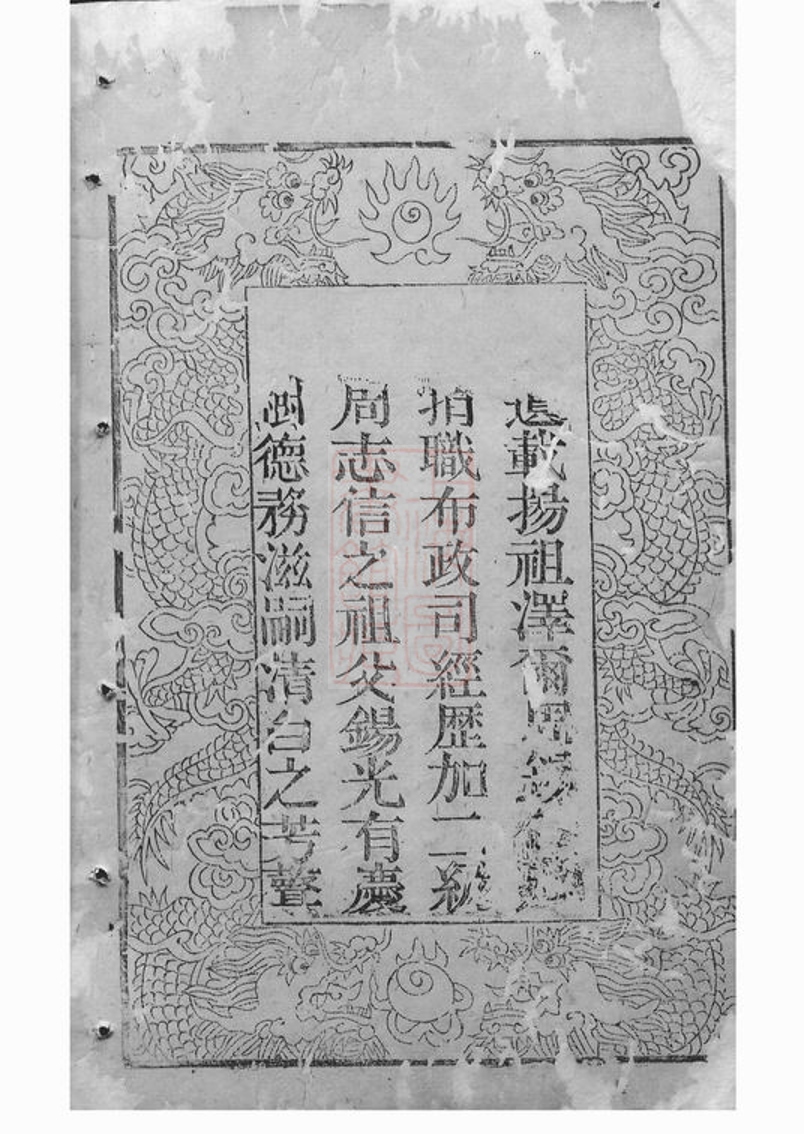 載揚祖澤爾周
捐職布政司經歷加二級
周志信之祖父錫光有慶
德務滋嗣清白之芳聲